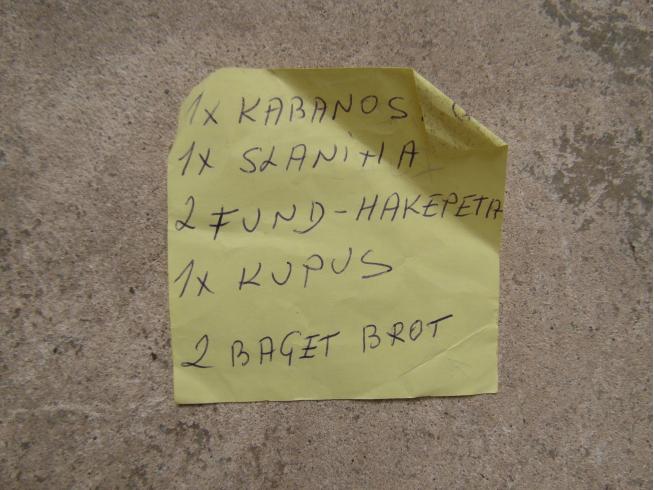 1x KABANOS.
1x SLANIHA
2 FUND-HAKEPETA
1x KUPUS
2 BAGET BROT